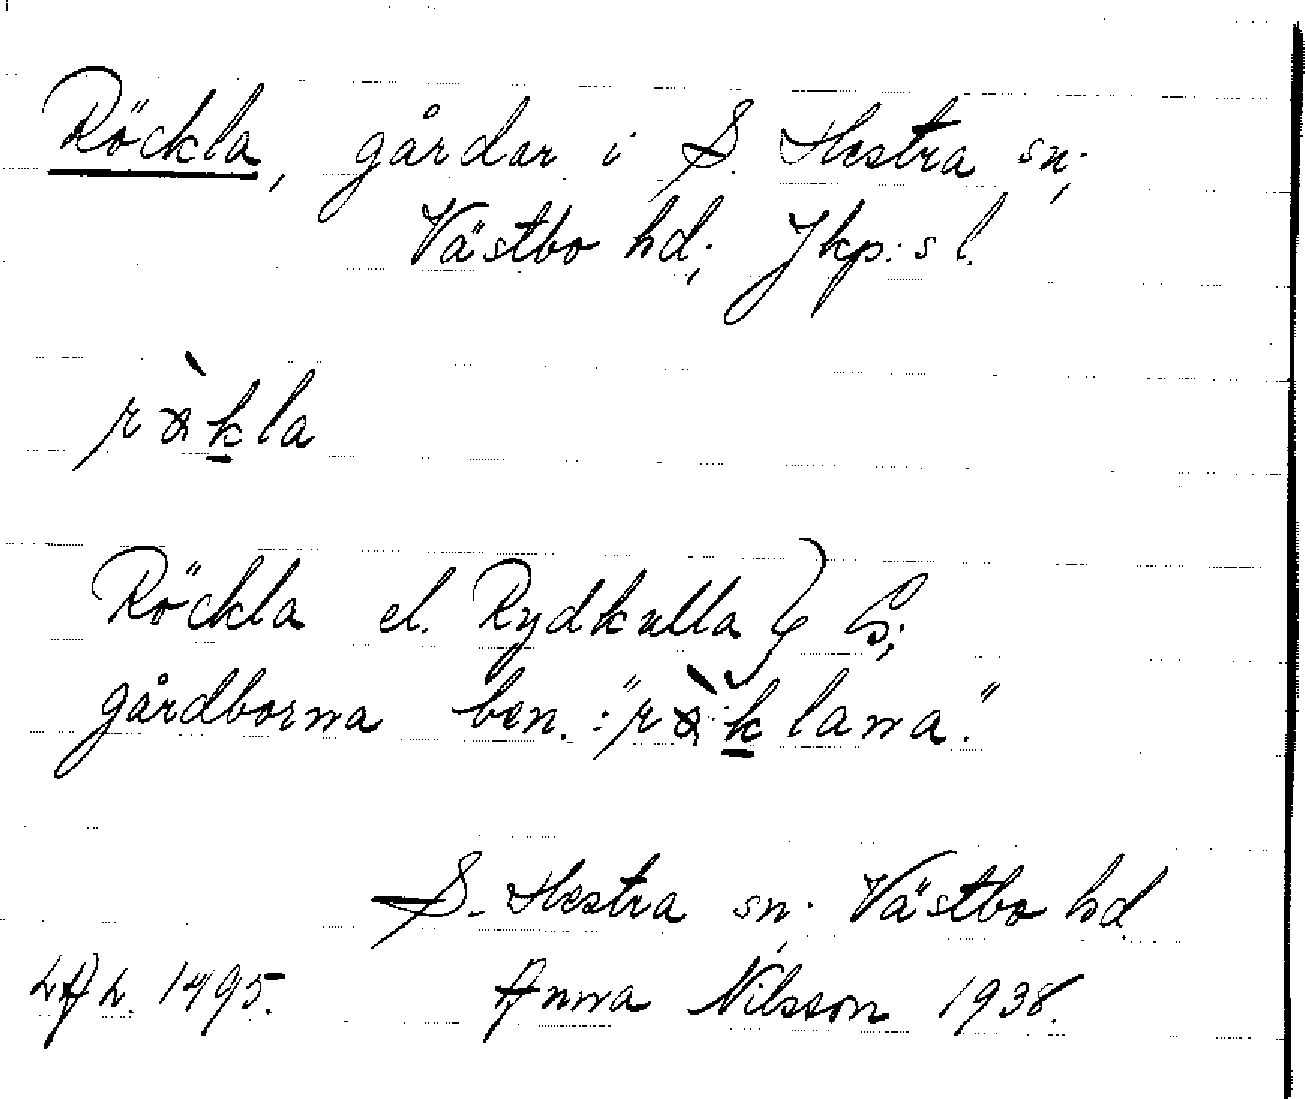 Röckla, gårdar i S. Hestra sn;
Västbo hd; Jkp:s l.
rø̀kla
Röckla el. Rydkulla
gårdborna ben.: "rø̀klana."
S. Hestra sn. Västbo hd.
LAL. 1495. Anna Nilsson 1938.